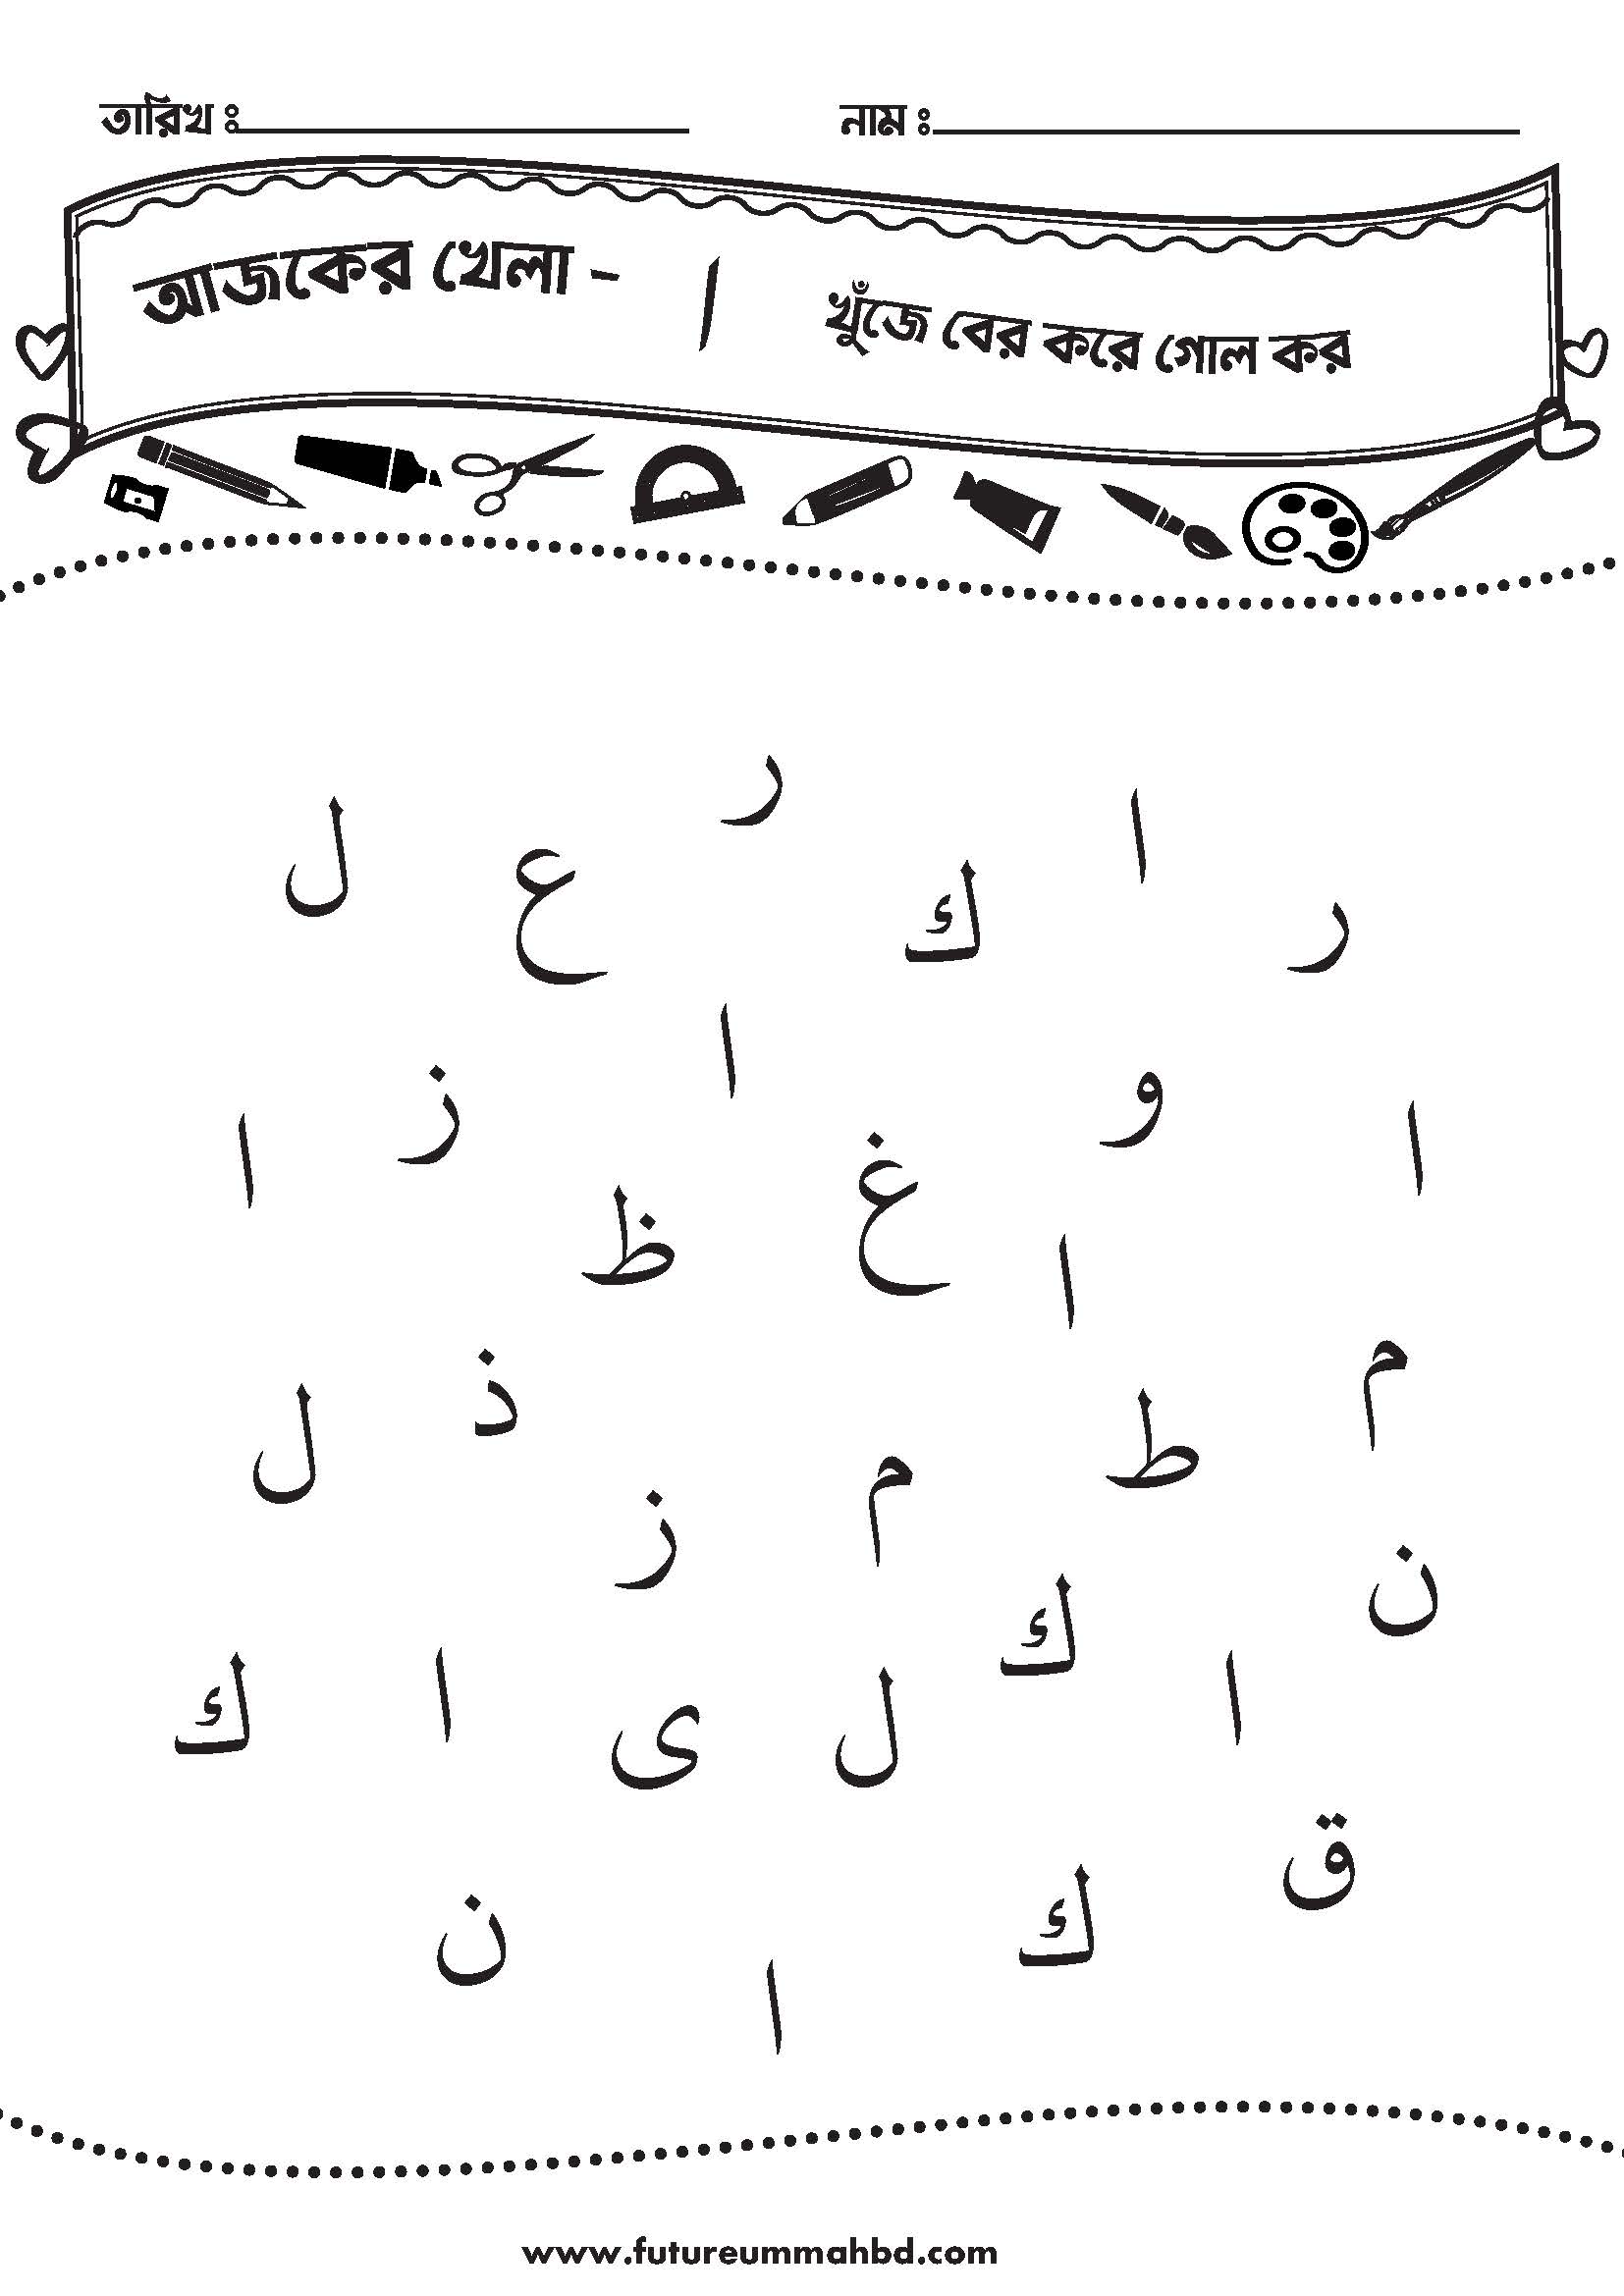 তারিখ ঃ নাম ঃ
আজকের খেলা - ا খুঁজে বের করে গোল কর
ل ع ر ك ا ر
ا ز ا و ا
ظ غ ا
ل ذ م ط م
ز ك ن
ك ا ى ل ا
ن ا ك ق
www.futureummahbd.com